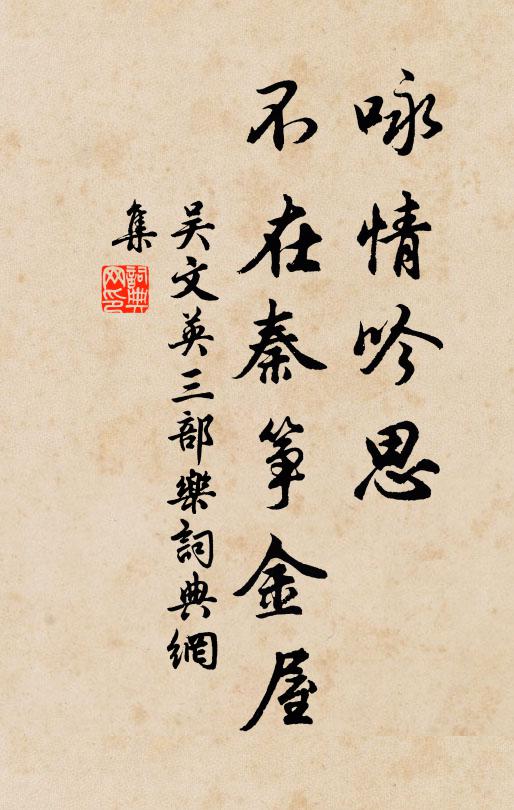 咏情吟思
不在秦筝金屋
吴文英三部樂詞典網
集
詞典
网印